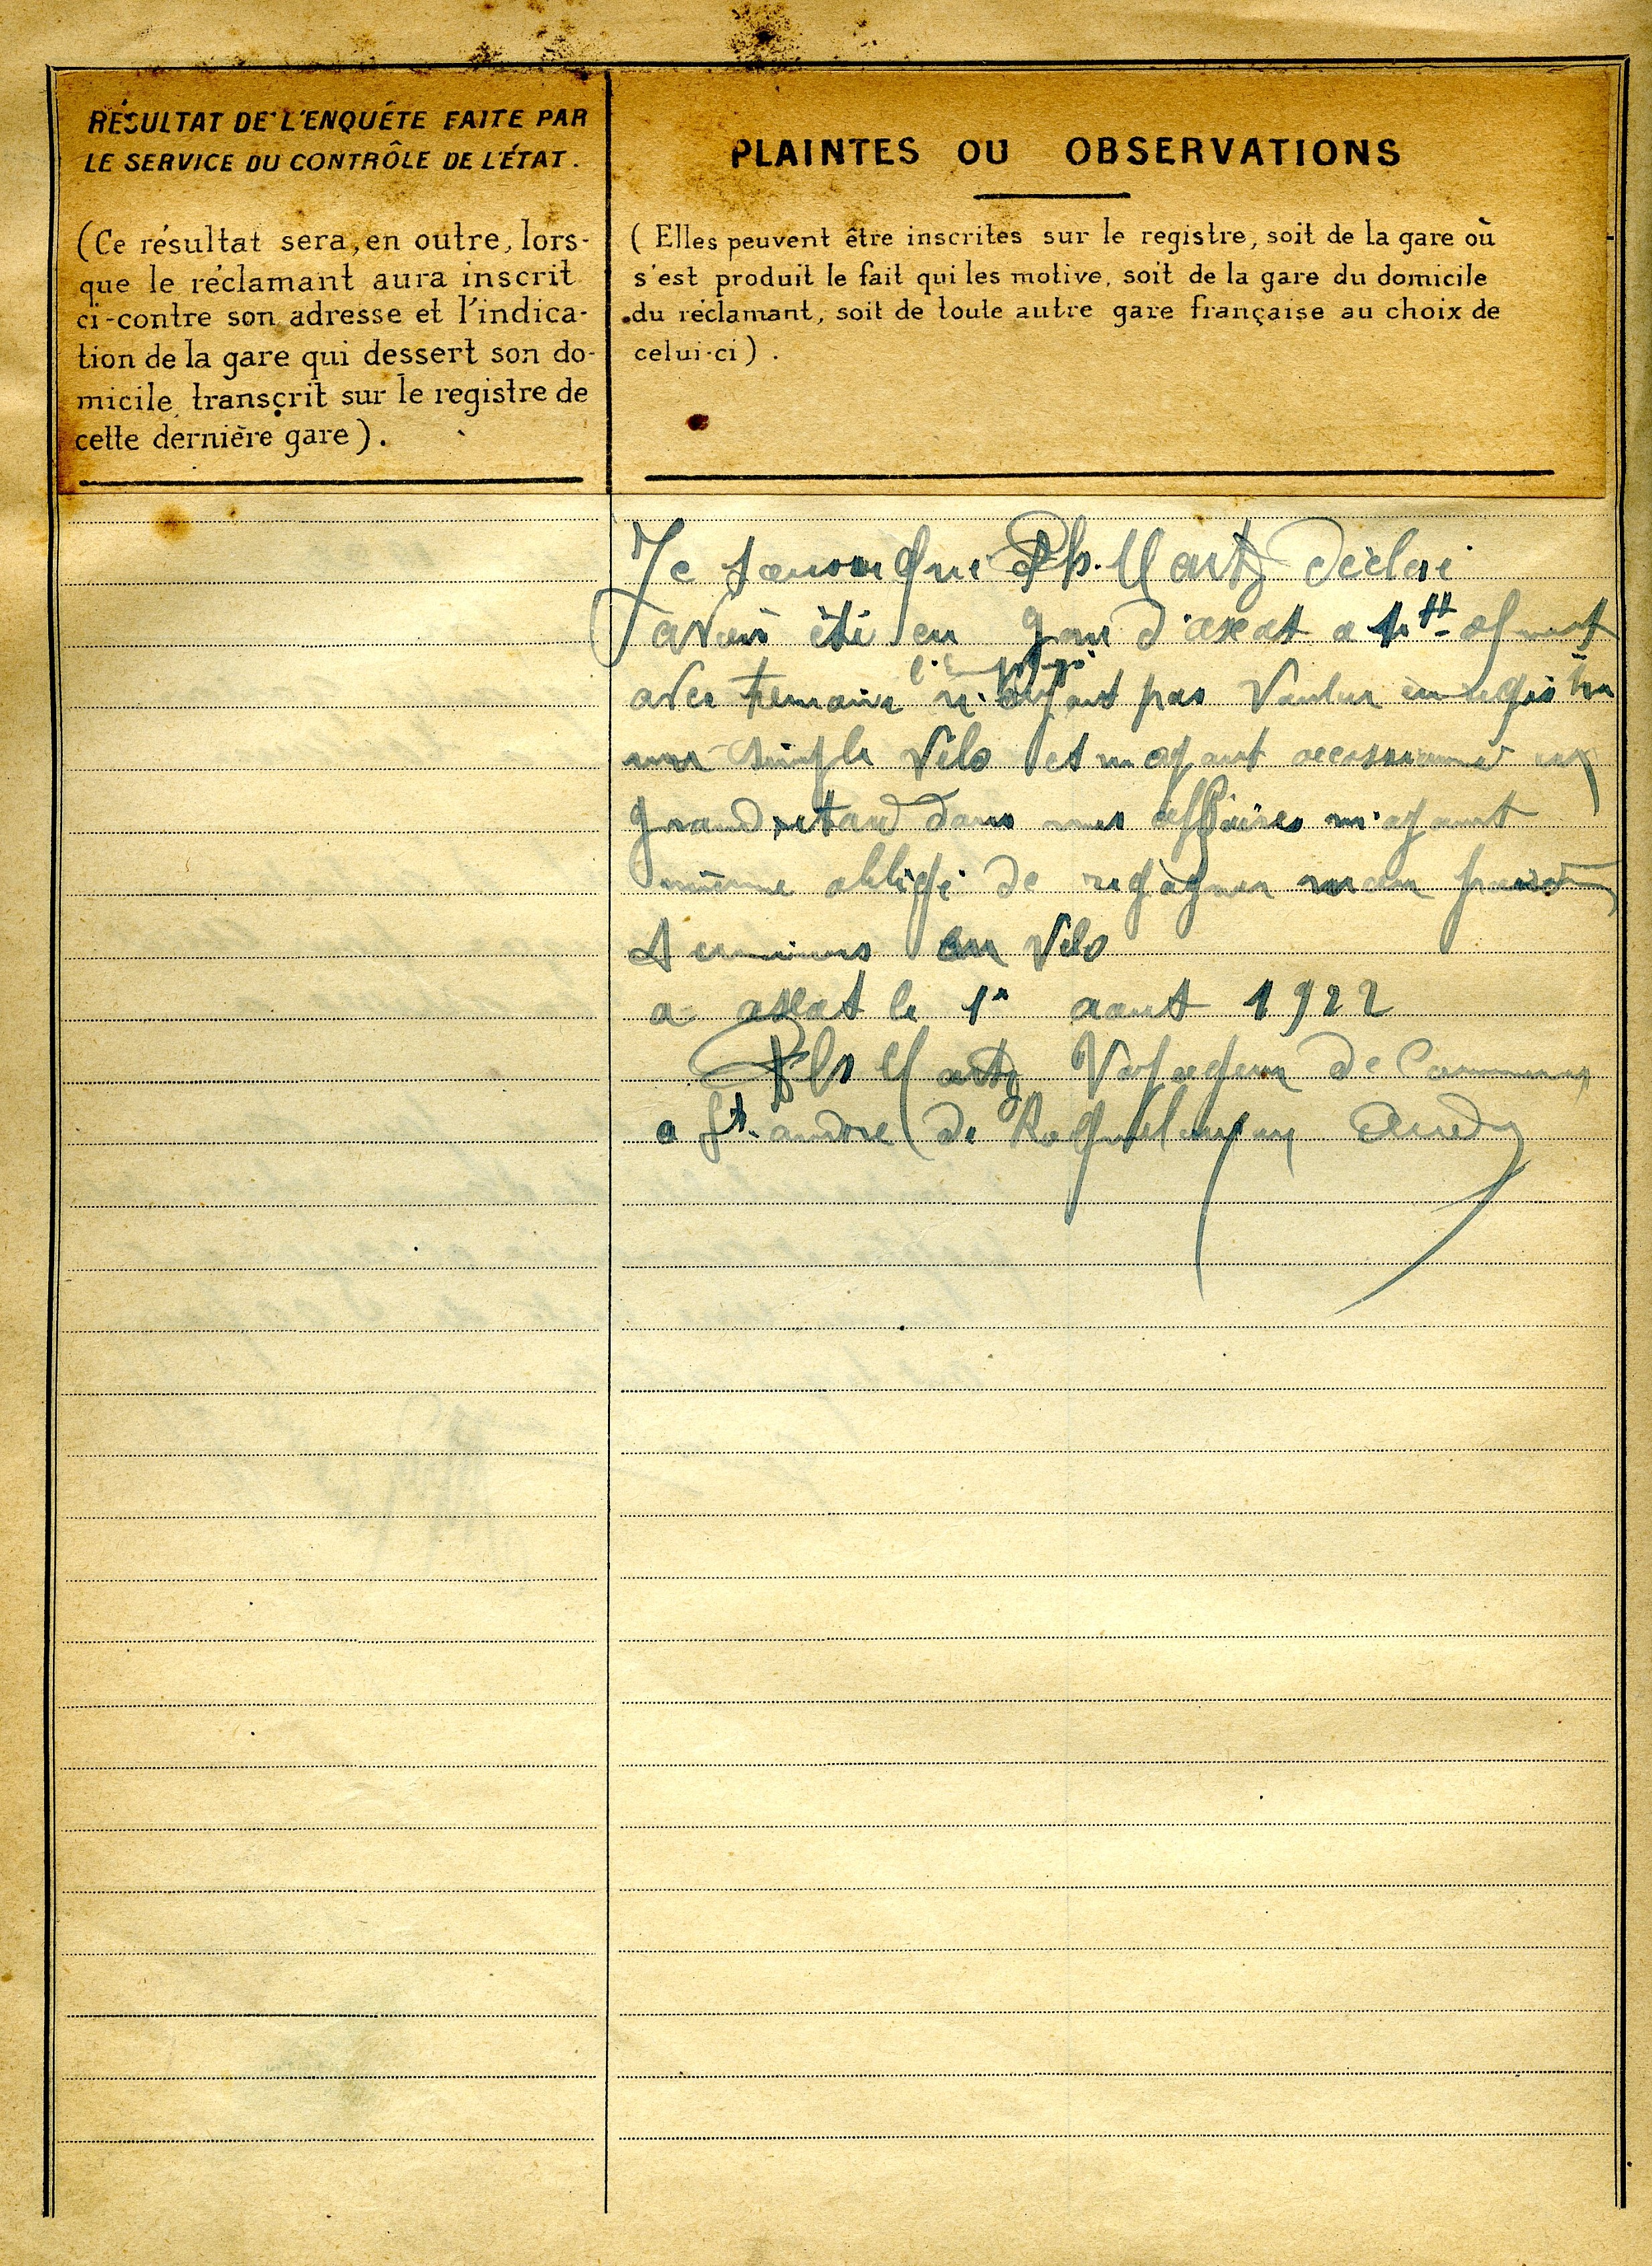 RÉSULTAT DE L'ENQUÊTE FAITE PAR
LE SERVICE DU CONTRÔLE DE L'ÉTAT.
(Ce résultat sera, en outre, lors-
que le réclamant aura inscrit
ci-contre son adresse et l'indica-
tion de la gare qui dessert son do-
micile, transcrit sur le registre de
cette dernière gare).
PLAINTES OU OBSERVATIONS
(Elles peuvent être inscrites sur le registre, soit de la gare où
s'est produit le fait qui les motive, soit de la gare du domicile
du réclamant, soit de toute autre gare française au choix de
celui-ci).
Je Ph. Martz déclare
avoir été en gare d'axat a
avec l'employé n'ayant pas Voulu enregistre
un simple Vélo et m'ayant occasionné un
grand retard dans mes affaires m'ayant
même obligé de regagner mon
en Vélo
a axat le 1r aout 1922
Ph Martz Voyageur de Commerce
a St. andre de Roquelongue Aude